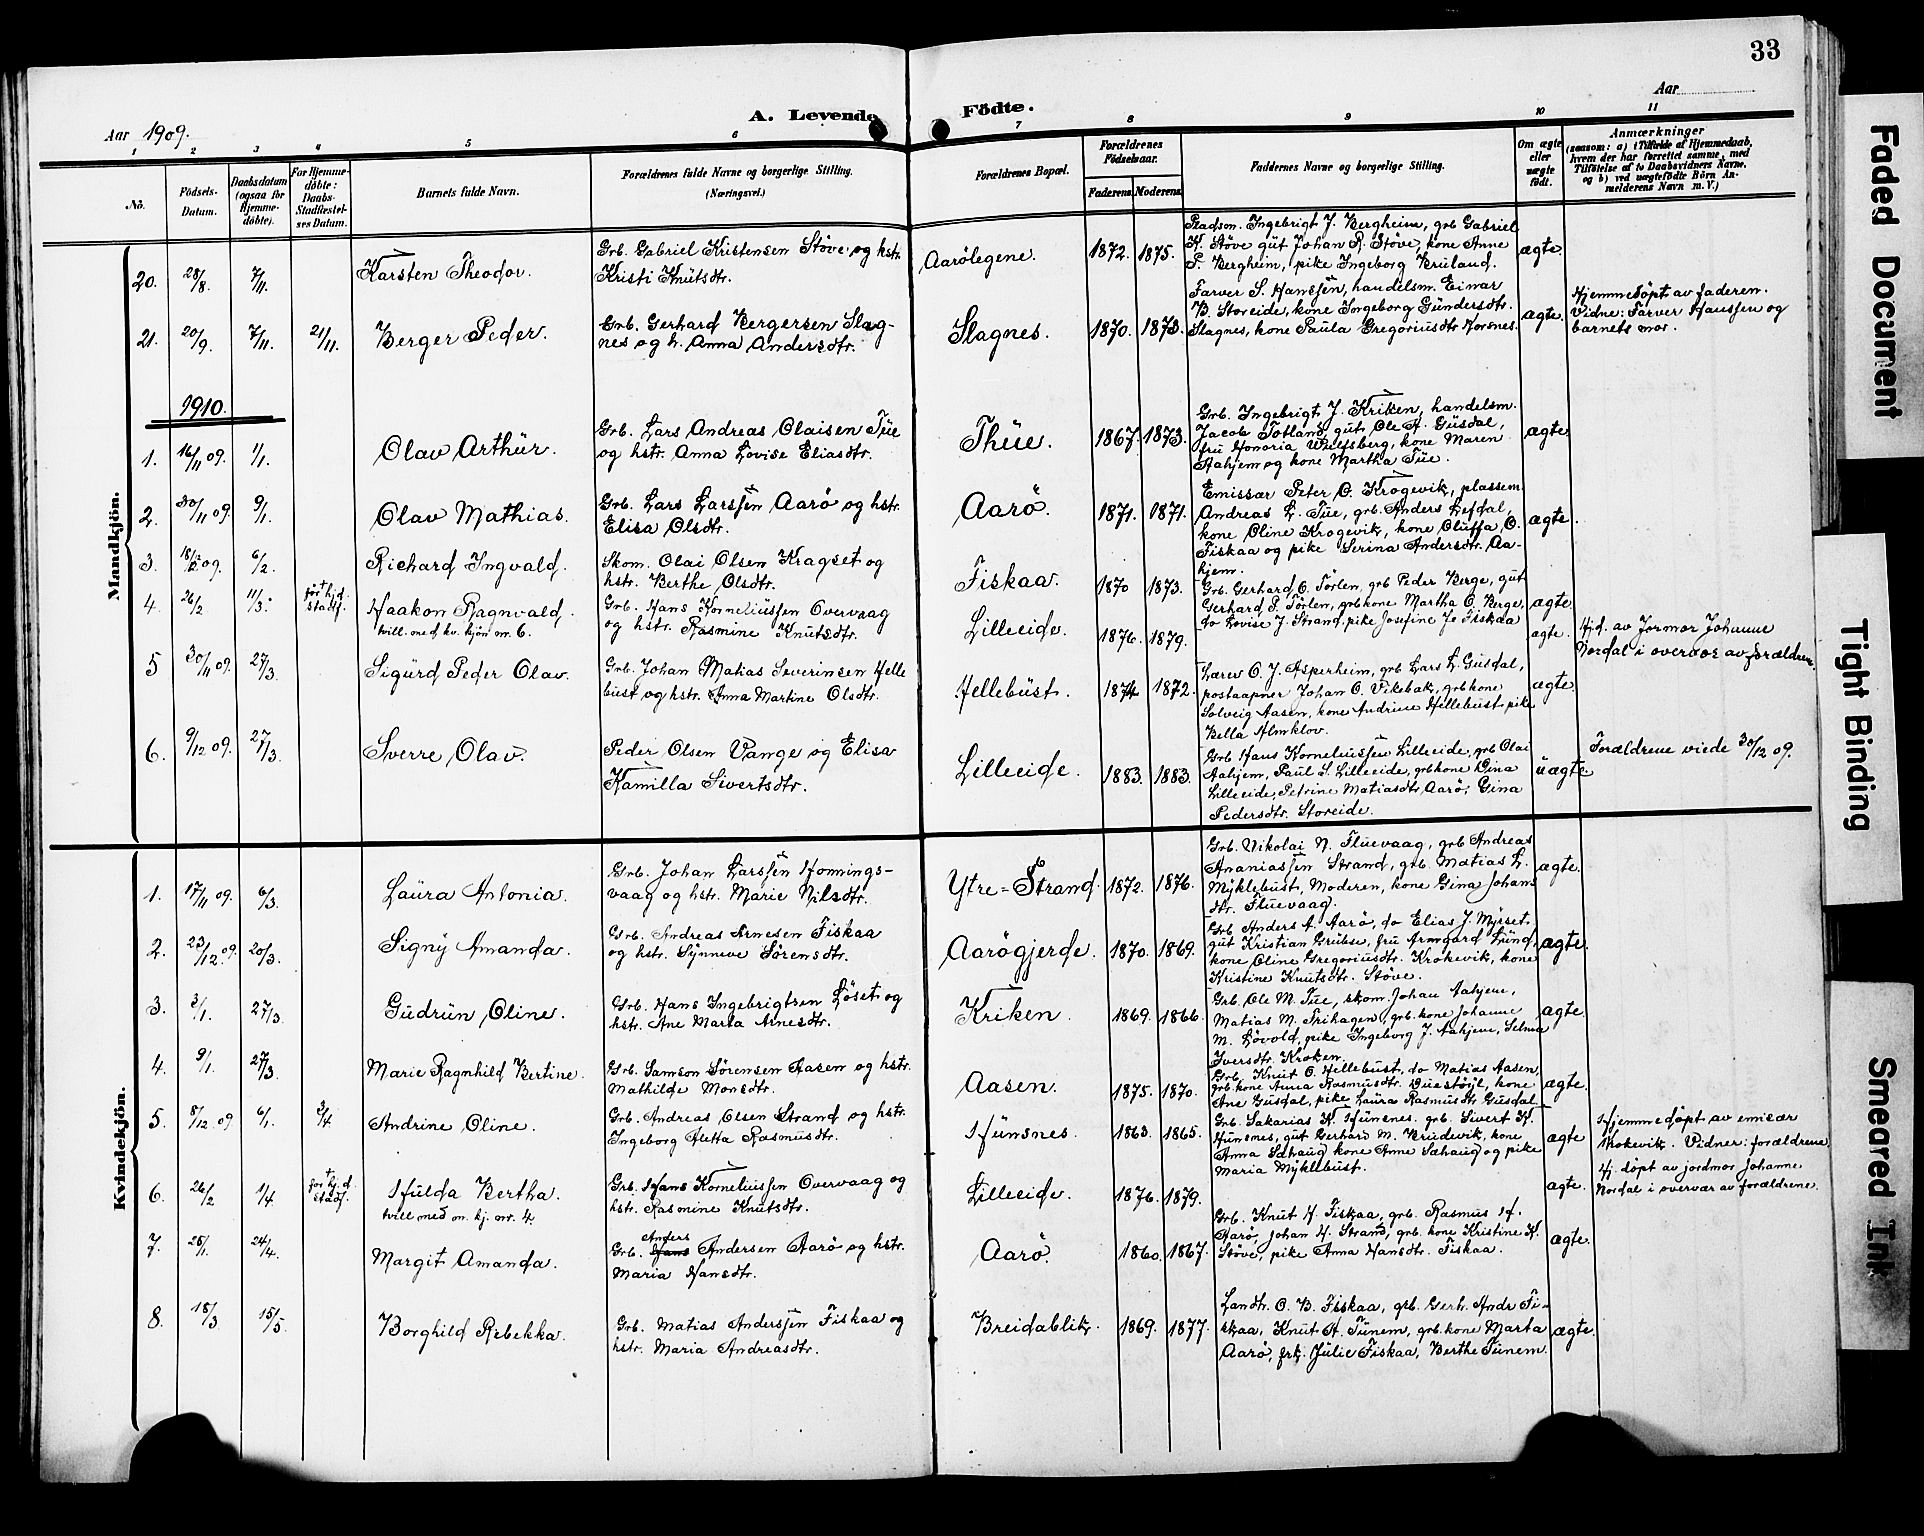 33
A. Levende Födte.
Aar 1909.
Aar
1 2 3 4 5 6 7 8 9 10 11
No.
Födsels-Datum.
Daabsdatum (ogsaa för Hjemme-döbte).
For Hjemme-döbte: Daabs-Stadfæstel-ses Datum.
Barnets fulde Navn.
Forældrenes fulde Navne og borgerlige Stilling. (Næringsvei.)
Forældrenes Bopæl.
Forældrenes Födselsaar.
Faderens. Moderens.
Faddernes Navne og borgerlige Stilling.
Om ægte eller uægte födt.
Anmærkninger
(saasom: a) i Tilfælde af Hjemmedaab, hvem der har forrettet samme, med Tilföielse af to Daabsvidners Navne, og b) ved uægtefödte Börn Anmelderens Navn m. V.)
Mandkjön.
20. 28/8 7/11. Karsten Theodor.
Grb. Gabriel Kristensen Støve og hstr.
Kristi Knutsdtr.
Aarölegene. 1872. 1875.
Ingebrigt J. Bergheim, grb Gabriel
K. Støve gut Johan R. Støve, kone Anne
P. Bergheim, pike Ingeborg Bruland.
ægte.
21. 20/9. 7/11. 21/11. Berger Peder.
Grb. Gerhard Bergersen Slag-
nes og h. Anna Andersdtr.
Slagnes. 1870. 1873.
Farver S. Hanssen, handelsm. Einar
B. Storeide, kone Ingeborg Gundersdtr.
Slagnes, kone Paula Gregoriusdtr Korsnes.
ægte.
Hjemmedöpt av faderen.
Vidne: Farver Hanssen og
barnets mor.
1910.
1. 16/11 09. 1/1. Olav Arthur.
Grb. Lars Andreas Olaisen Tue
og hstr. Anna Lovise Eliasdtr.
Thue. 1867. 1873.
Grb. Ingebrigt J. Kriken, handelsm.
Jacob Totland, gut Ole A. Gusdal,
fru Honoria Wulfsberg, kone Maren
Aahjem og kone Martha Tue.
ægte
2. 30/11 09. 9/1. Olav Mathias.
Grb. Lars Larssen Aarö og hstr.
Elisa Olsdtr.
Aarö. 1871. 1871.
Emissær Peter O. Krogevik, plassem.
Andreas L. Tue, grb. Anders Lefdal,
kone Oline Krogevik, kone Oluffa O.
Fiskaa og pike Serina Andersdtr. Aa-
hjem.
ægte.
3. 18/12 09. 6/2. Richard Ingvald.
Skom. Olai Olsen Kragset og
hstr. Berthe Olsdtr.
Fiskaa. 1870 1873.
Grb. Gerhard O. Törlen, grb Peder Berge, gut
Gerhard P. Törlen, grbkone Martha O. Berge,
do Lovise J. Strand, pike Josefine Jo Fiskaa
ægte.
4. 26/2 11/3. før hj.d. stadf. Haakon Ragnvald.
tvill. med kv. kjön nr. 6.
Grb. Hans Korneliussen Overvaag
og hstr. Rasmine Knutsdtr.
Lilleeide. 1876. 1879.
ægte.
Hj.d. av Jormor Johanne
Nordal i overvær av forældrene.
5 30/11 09. 27/3. Sigurd Peder Olav.
Grb. Johan Matias Severinsen Helle
bust og hstr. Anna Martine Olsdtr.
Hellebust. 1874 1872.
Lærer O. J. Asperheim, grb Lars L. Gusdal,
postaapner Johan O. Vikebak, grbkone
Solveig Aasen, kone Andrine Hellebust pike
Bella Almklov.
ægte.
6. 9/12 09. 27/3. Sverre Olav.
Peder Olsen Vange og Elisa
Kamilla Sivertsdtr.
Lilleeide. 1883. 1883.
Grb Hans Korneliussen Lilleeide, grb Olai
Aahjem, Paul S. Lilleeide, grbkone Dina
Lilleeide, Petrine Matiasdtr Aarö, Gina
Pedersdtr. Storeide.
uægte
Forældrene viede 30/12 09.
Kvindekjön.
1. 17/11 09. 6/3. Laura Antonia.
Grb. Johan Larssen Honnings-
vaag og hstr. Marie Nilsdtr.
Ytre-Strand. 1872. 1876.
Grb. Nikolai N. Fluevaag, grb Andreas
Ananiassen Strand, grb. Matias L.
Myklebust, Moderen, kone Gina Johans
dtr. Fluevaag.
ægte.
2. 23/12 09. 20/3. Signy Amanda.
Grb. Andreas Arnesen Fiskaa
og hstr. Synneve Sørensdtr.
Aarögjerde. 1870. 1869.
Grb Anders A. Aarö, do Elias J. Myrset,
gut Kristian Grubse, fru Armgard Lund,
kone Oline Gregoriusdtr. Krokevik, kone
Kristine Knutsdtr. Støve.
ægte.
3. 3/1. 27/3. Gudrun Oline.
Grb. Hans Ingebrigtsen Löset og
hstr. Ane Marta Arnesdtr.
Kriken. 1869. 1866.
Grb. Ole M. Tue, skom. Johan Aahjem,
Matias M. Frihagen, grb kone Johanne
M. Lövold, pike Ingeborg J. Aahjem, Selma
Iversdtr. Kroken.
ægte.
4. 9/1. 27/3. Marie Ragnhild Bertine.
Grb. Samson Sörensen Aasen og hstr.
Mathilde Monsdtr.
Aasen. 1875. 1870.
Grb. Knut O. Hellebust, do Matias Aasen,
grb kone Anna Rasmusdtr. Duestøyl, kone
Ane Gusdal, pike Laura Rasmusdtr Gusdal.
ægte.
5 8/12 09. 6/1. 3/4 Andrine Oline.
Grb. Andreas Olsen Strand og hstr.
Ingeborg Aletta Rasmusdtr.
Hunsnes. 1863. 1865.
Grb. Sakarias K. Hunsnes. grb. Sivert K.
Hunsnes, gut Gerhard M. Brudevik, kone
Anna Sæhaug, kone Anne Sæhaug og pike
Maria Myklebust.
ægte
Hjemmedöpt av emisær
Krokevik. Vidner: forældrene
6. 26/2 1/4 før hj.d. stadf. Hulda Bertha.
tvill med m. kj. nr. 4
Grb. Hans Korneliussen Overvaag og
hstr. Rasmine Knutsdtr.
Lilleeide. 1876. 1879.
ægte.
Hj. döpt av jordmor Johanne
Nordal i overvær av forældrene.
7. 25/1. 24/4. Margit Amanda.
Anders
Grb. Hans Andersen Aarö og hstr.
Maria Hansdtr.
Aarö. 1860. 1867.
Grb. Knut H. Fiskaa, grb. Rasmus H.
Aarö, Johan H. Strand, grb. kone Kristine K.
Støve, pike Anna Hansdtr. Fiskaa.
ægte.
8. 18/3. 15/5. Borghild Rebekka.
Grb. Matias Anderssen Fiskaa og
hstr. Maria Andreasdtr.
Breidablik. 1869. 1877.
Landh. O. B. Fiskaa, grb. Gerh. Andr Fi-
skaa, Knut A. Tunem, grb.kone Marta
Aarö, frk. Julie Fiskaa, Berthe Tunem.
ægte.
Faded Document
Tight Binding
Smeared Ink